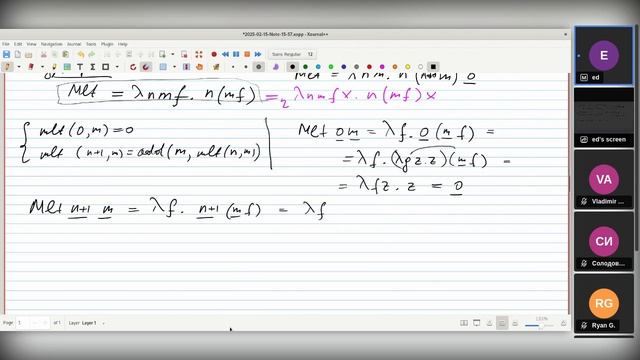 *2025-02-15-Note-15-57.xopp - Xournal++
File Edit View Navigation Journal Tools Plugin Help
Sans Regular 12
Mlt = λnm. n (add m) 0
Mlt = λnmf. n(mf) =₂ λnmfx. n(mf)x
{ mlt(0,m)=0
mlt (n+1,m)=add(m, mlt(n,m))
Mlt 0 m = λf. 0(mf) =
= λf.(λgz.z)(mf) =
= λfz.z = 0
Mlt n+1 m = λf. n+1 (mf) = λf
Page 1 of 1 Layer Layer 1
E
ed
ed's screen
VA
Vladimir ...
СИ
Солодов...
RG
Ryan G.